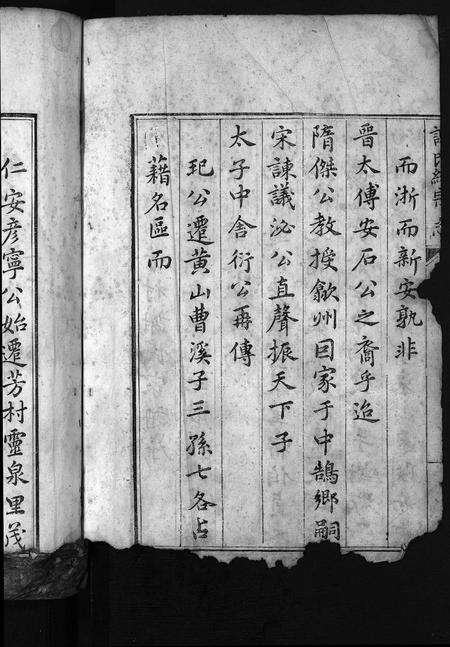 而浙而新安孰非
晉太傅安石公之裔乎迨
隋傑公教授歙州因家于中鵠鄉嗣
宋諫議泌公直聲振天下子
太子中舍衍公再傳
玘公遷黄山曹溪子三孫七各占
藉名區而
仁安彦寧公始遷芳村靈泉里茂